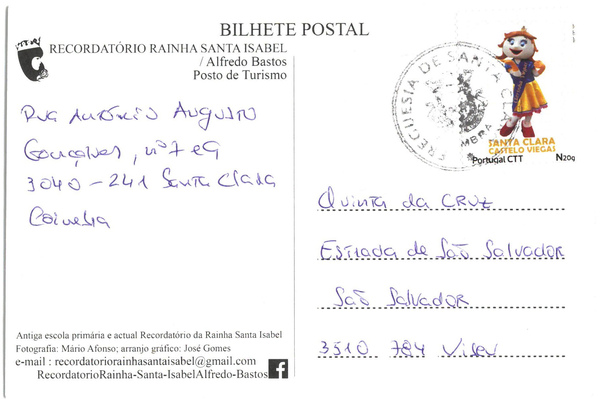 BILHETE POSTAL
RECORDATÓRIO RAINHA SANTA ISABEL
/ Alfredo Bastos
Posto de Turismo
Rua António Augusto
Gonçalves, nº 7 e 9
3040 - 241 Santa Clara
Coimbra
FREGUESIA DE SANTA CLARA
SANTA CLARA
CASTELO VIEGAS
Portugal CTT N20g
Quinta da CRUZ
Estrada de São Salvador
São Salvador
3510 784 Viseu
Antiga escola primária e actual Recordatório da Rainha Santa Isabel
Fotografia: Mário Afonso; arranjo gráfico: José Gomes
e-mail : recordatoriorainhasantaisabel@gmail.com
RecordatorioRainha-Santa-IsabelAlfredo-Bastos f